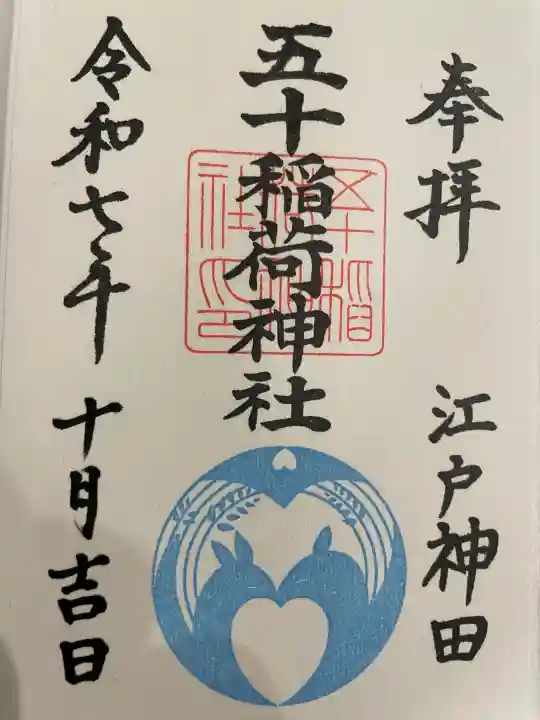 奉拝
江戸神田
五十稲荷神社
令和七年
十月吉日